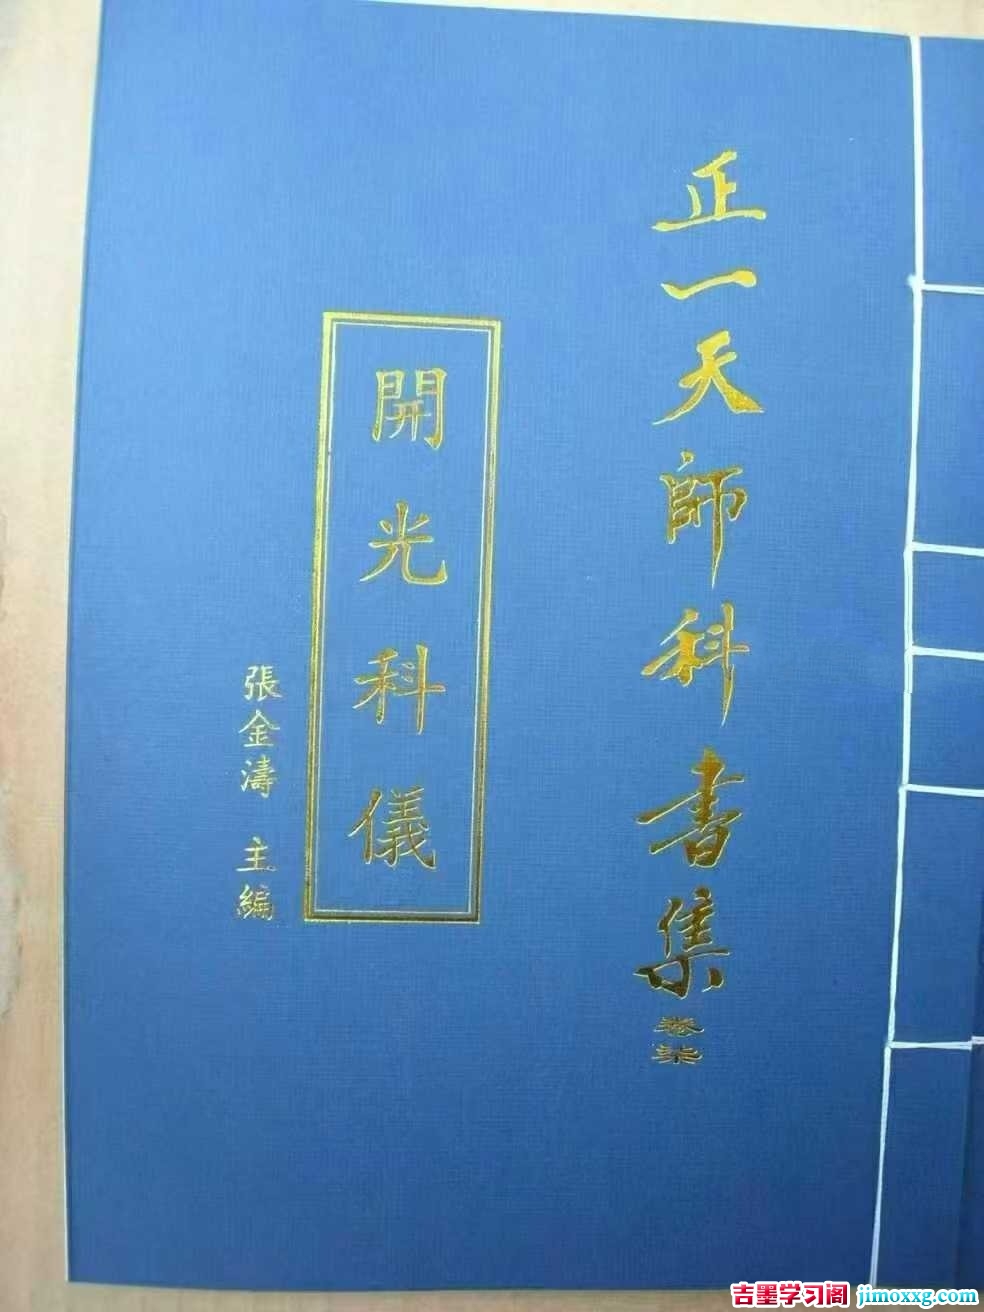 正一天師科書集 卷柒
開光科儀
張金濤 主編
吉墨学习阁 jimoxxg.com